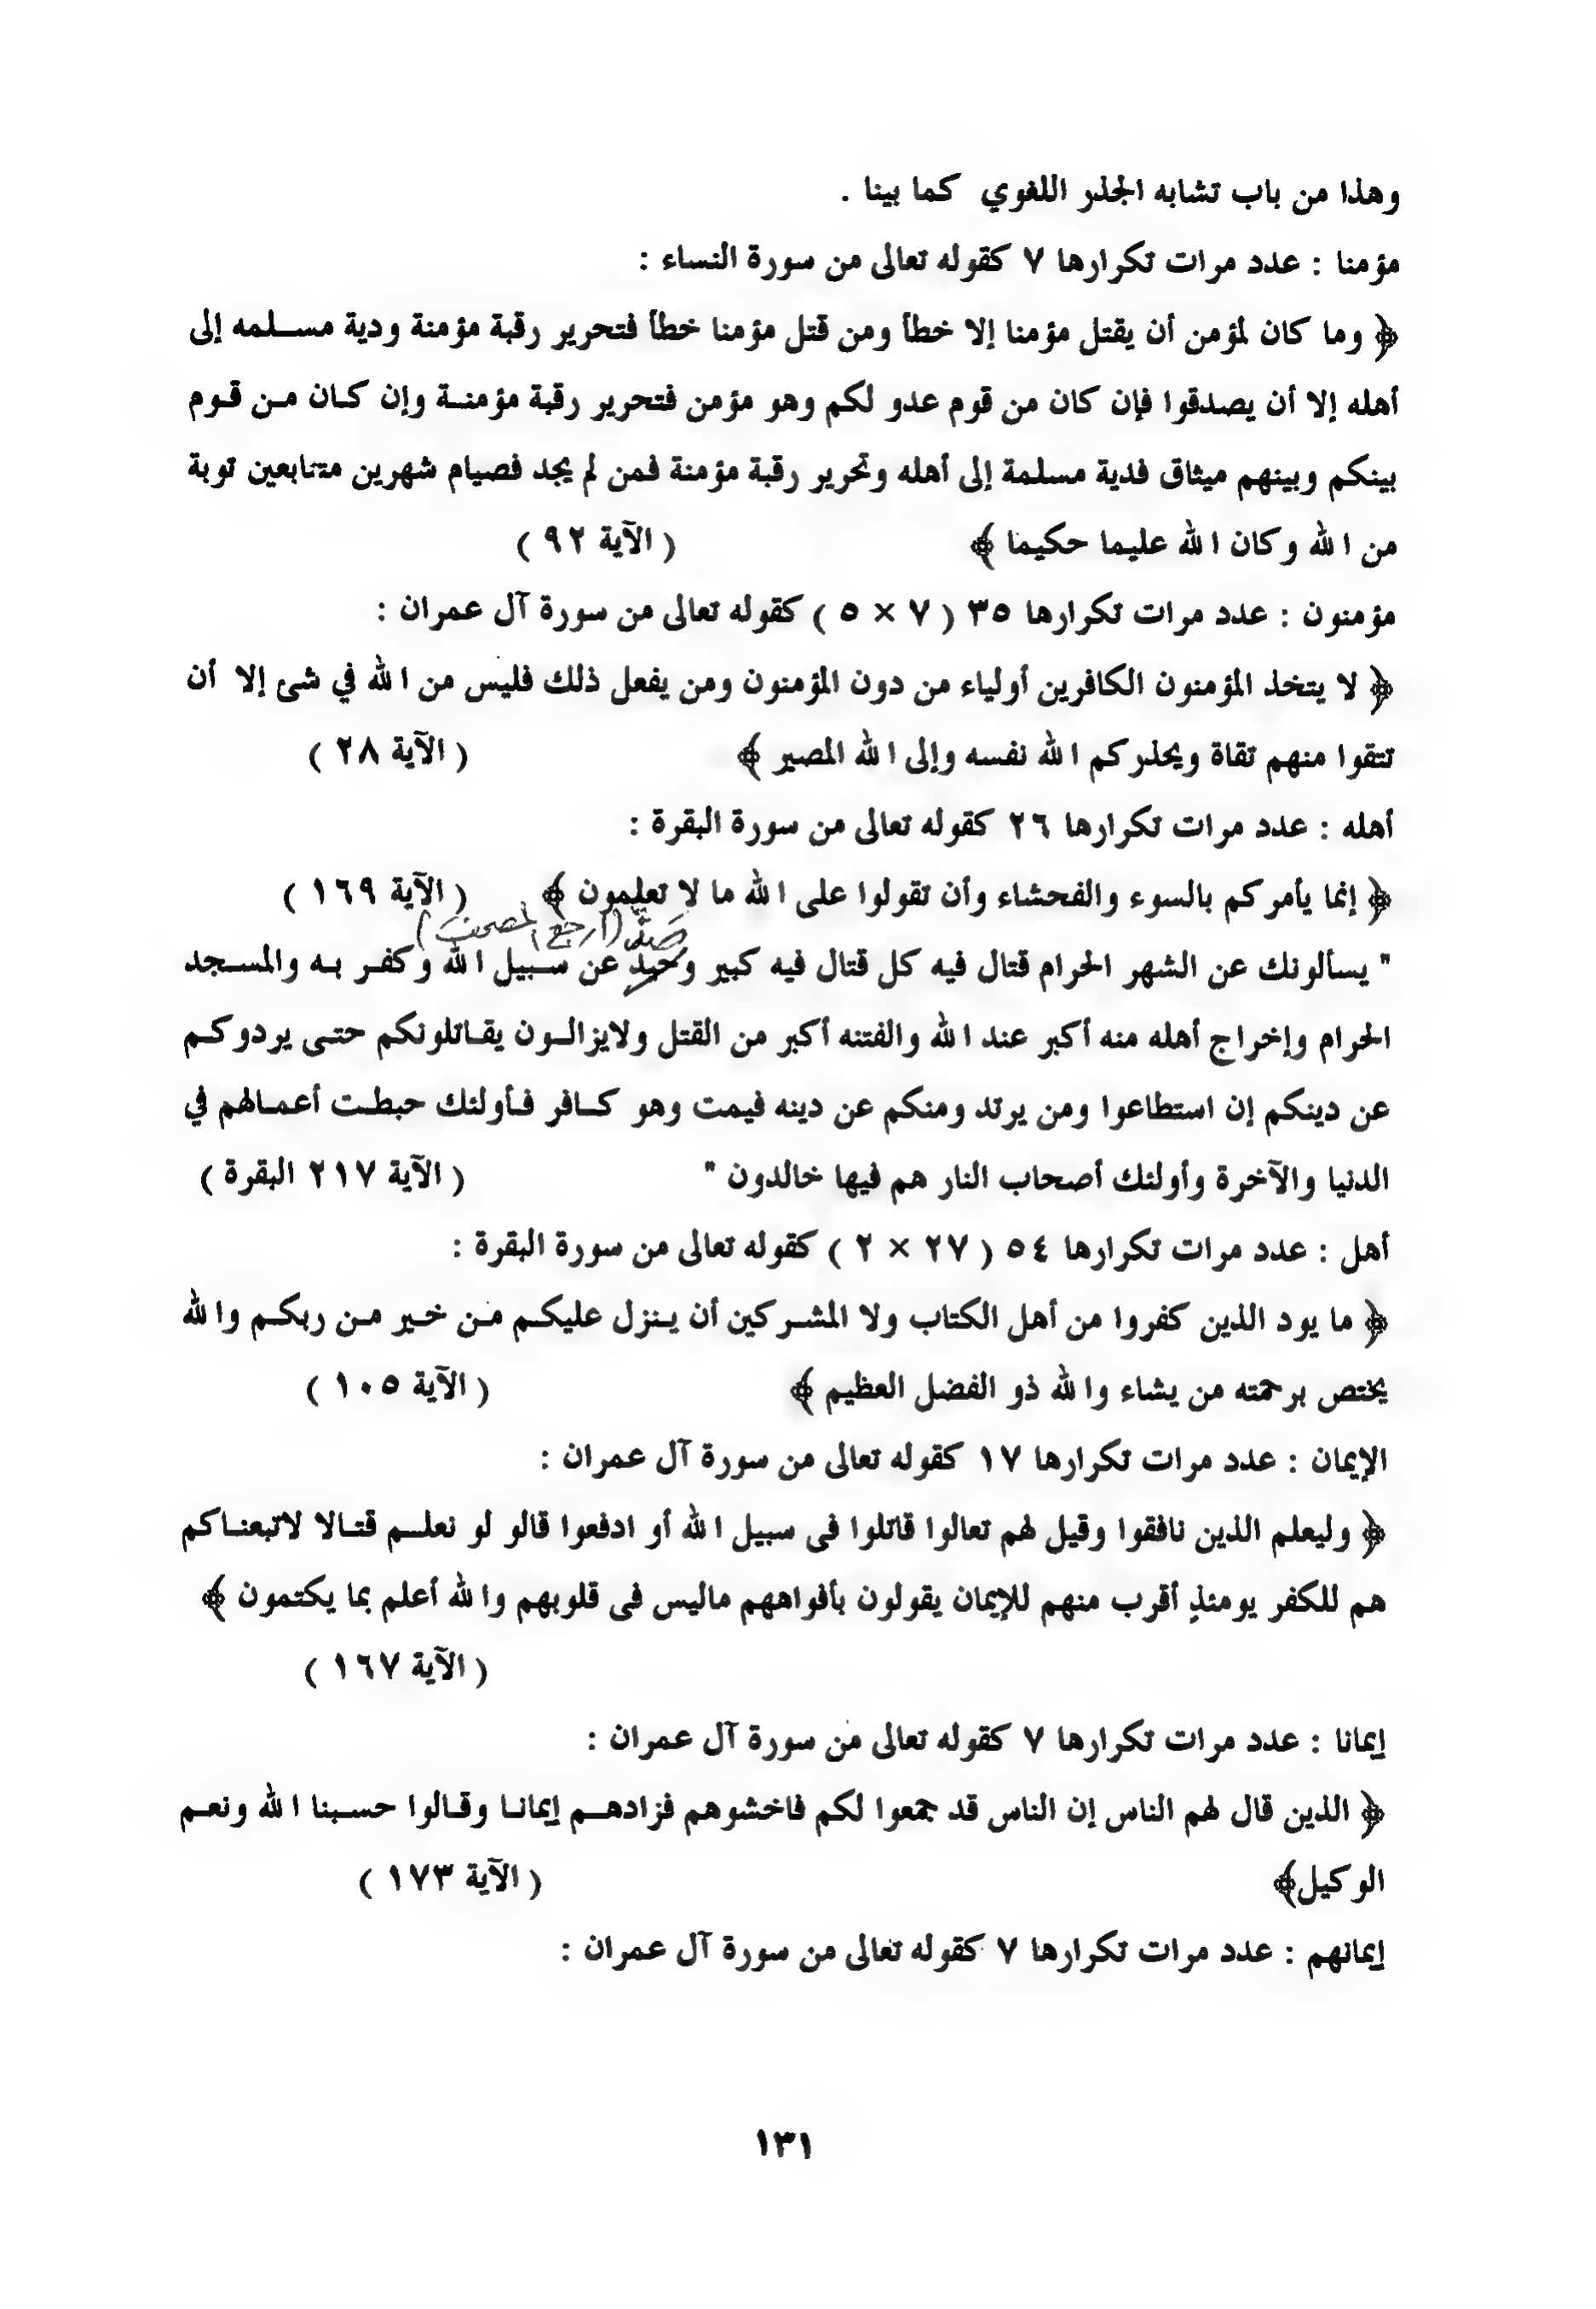 وهذا من باب تشابه الجذر اللغوي كما بينا .
مؤمنا : عدد مرات تكرارها ٧ كقوله تعالى من سورة النساء :
﴿ وما كان لمؤمن أن يقتل مؤمنا إلا خطأ ومن قتل مؤمنا خطأ فتحرير رقبة مؤمنة ودية مسلمه إلى
أهله إلا أن يصدقوا فإن كان من قوم عدو لكم وهو مؤمن فتحرير رقبة مؤمنة وإن كان من قوم
بينكم وبينهم ميثاق فدية مسلمة إلى أهله وتحرير رقبة مؤمنة فمن لم يجد فصيام شهرين متتابعين توبة
من الله وكان الله عليما حكيما ﴾ ( الآية ٩٢ )
مؤمنون : عدد مرات تكرارها ٣٥ ( ٧ × ٥ ) كقوله تعالى من سورة آل عمران :
﴿ لا يتخذ المؤمنون الكافرين أولياء من دون المؤمنون ومن يفعل ذلك فليس من الله في شئ إلا أن
تتقوا منهم تقاة ويحذركم الله نفسه وإلى الله المصير ﴾ ( الآية ٢٨ )
أهله : عدد مرات تكرارها ٢٦ كقوله تعالى من سورة البقرة :
﴿ إنما يأمركم بالسوء والفحشاء وأن تقولوا على الله ما لا تعلمون ﴾ ( الآية ١٦٩ )
صدٌّ (ارجع المصحف)
" يسألونك عن الشهر الحرام قتال فيه كل قتال فيه كبير وحيد عن سبيل الله وكفر به والمسجد
الحرام وإخراج أهله منه أكبر عند الله والفتنه أكبر من القتل ولايزالون يقاتلونكم حتى يردوكم
عن دينكم إن استطاعوا ومن يرتد ومنكم عن دينه فيمت وهو كافر فأولئك حبطت أعمالهم في
الدنيا والآخرة وأولئك أصحاب النار هم فيها خالدون " ( الآية ٢١٧ البقرة )
أهل : عدد مرات تكرارها ٥٤ ( ٢٧ × ٢ ) كقوله تعالى من سورة البقرة :
﴿ ما يود الذين كفروا من أهل الكتاب ولا المشركين أن ينزل عليكم من خير من ربكم والله
يختص برحمته من يشاء والله ذو الفضل العظيم ﴾ ( الآية ١٠٥ )
الإيمان : عدد مرات تكرارها ١٧ كقوله تعالى من سورة آل عمران :
﴿ وليعلم الذين نافقوا وقيل لهم تعالوا قاتلوا فى سبيل الله أو ادفعوا قالو لو نعلم قتالا لاتبعناكم
هم للكفر يومئذٍ أقرب منهم للإيمان يقولون بأفواههم ماليس فى قلوبهم والله أعلم بما يكتمون ﴾
( الآية ١٦٧ )
إيمانا : عدد مرات تكرارها ٧ كقوله تعالى من سورة آل عمران :
﴿ الذين قال لهم الناس إن الناس قد جمعوا لكم فاخشوهم فزادهم إيمانا وقالوا حسبنا الله ونعم
الوكيل﴾ ( الآية ١٧٣ )
إيمانهم : عدد مرات تكرارها ٧ كقوله تعالى من سورة آل عمران :
١٣١